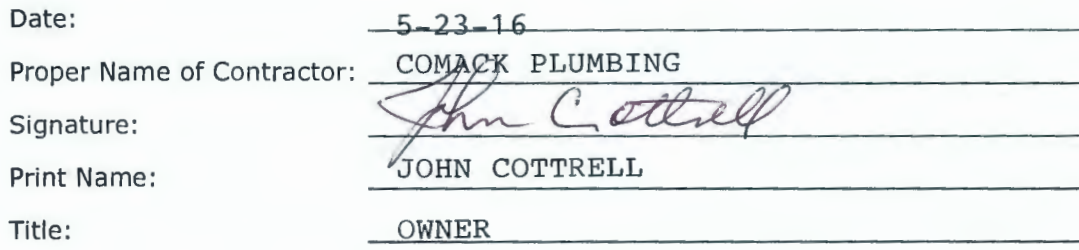 Date: 5-23-16
Proper Name of Contractor: COMACK PLUMBING
Signature: John Cottrell
Print Name: JOHN COTTRELL
Title: OWNER